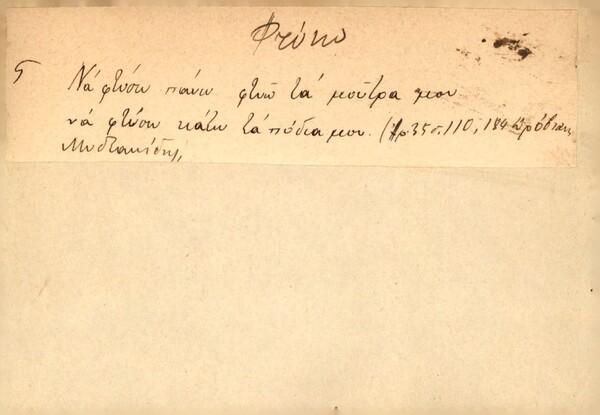 Φτύνω
5 Νά φτύσω πάνω φτυῶ τά μοῦτρα μου
νά φτύσω κάτω τά πόδια μου. (Χρ. 35 σ. 110, 184
Μυστακίδης